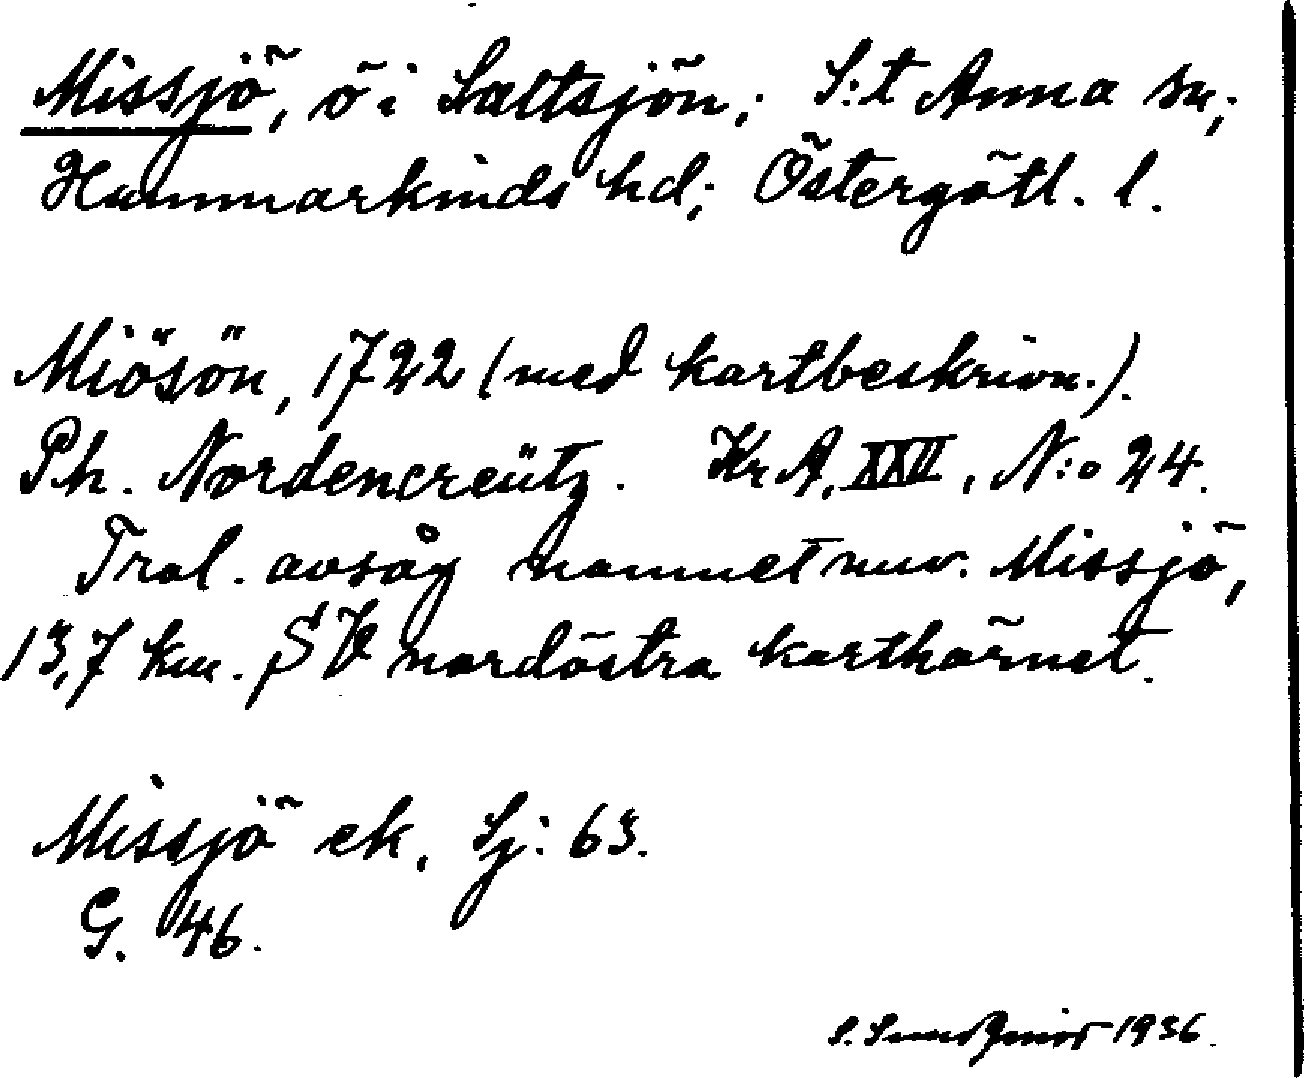 Missjö, ö i Saltsjön; S:t Anna sn;
Hammarkinds hd; Östergötl. l.
Miösön, 1722 (med kartbeskrivn.).
Ph. Nordencreütz. Kr A, XXII, N:o 24.
Trol. avsåg namnet nuv. Missjö,
13,7 km. SV nordöstra karthörnet.
Missjö ek. Sj: 63.
G. 46.
S. 1936.